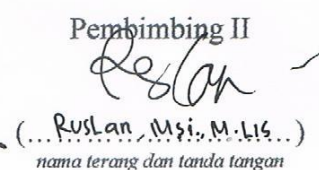 Pembimbing II
(RusLan, Msi., M.LIS)
nama terang dan tanda tangan